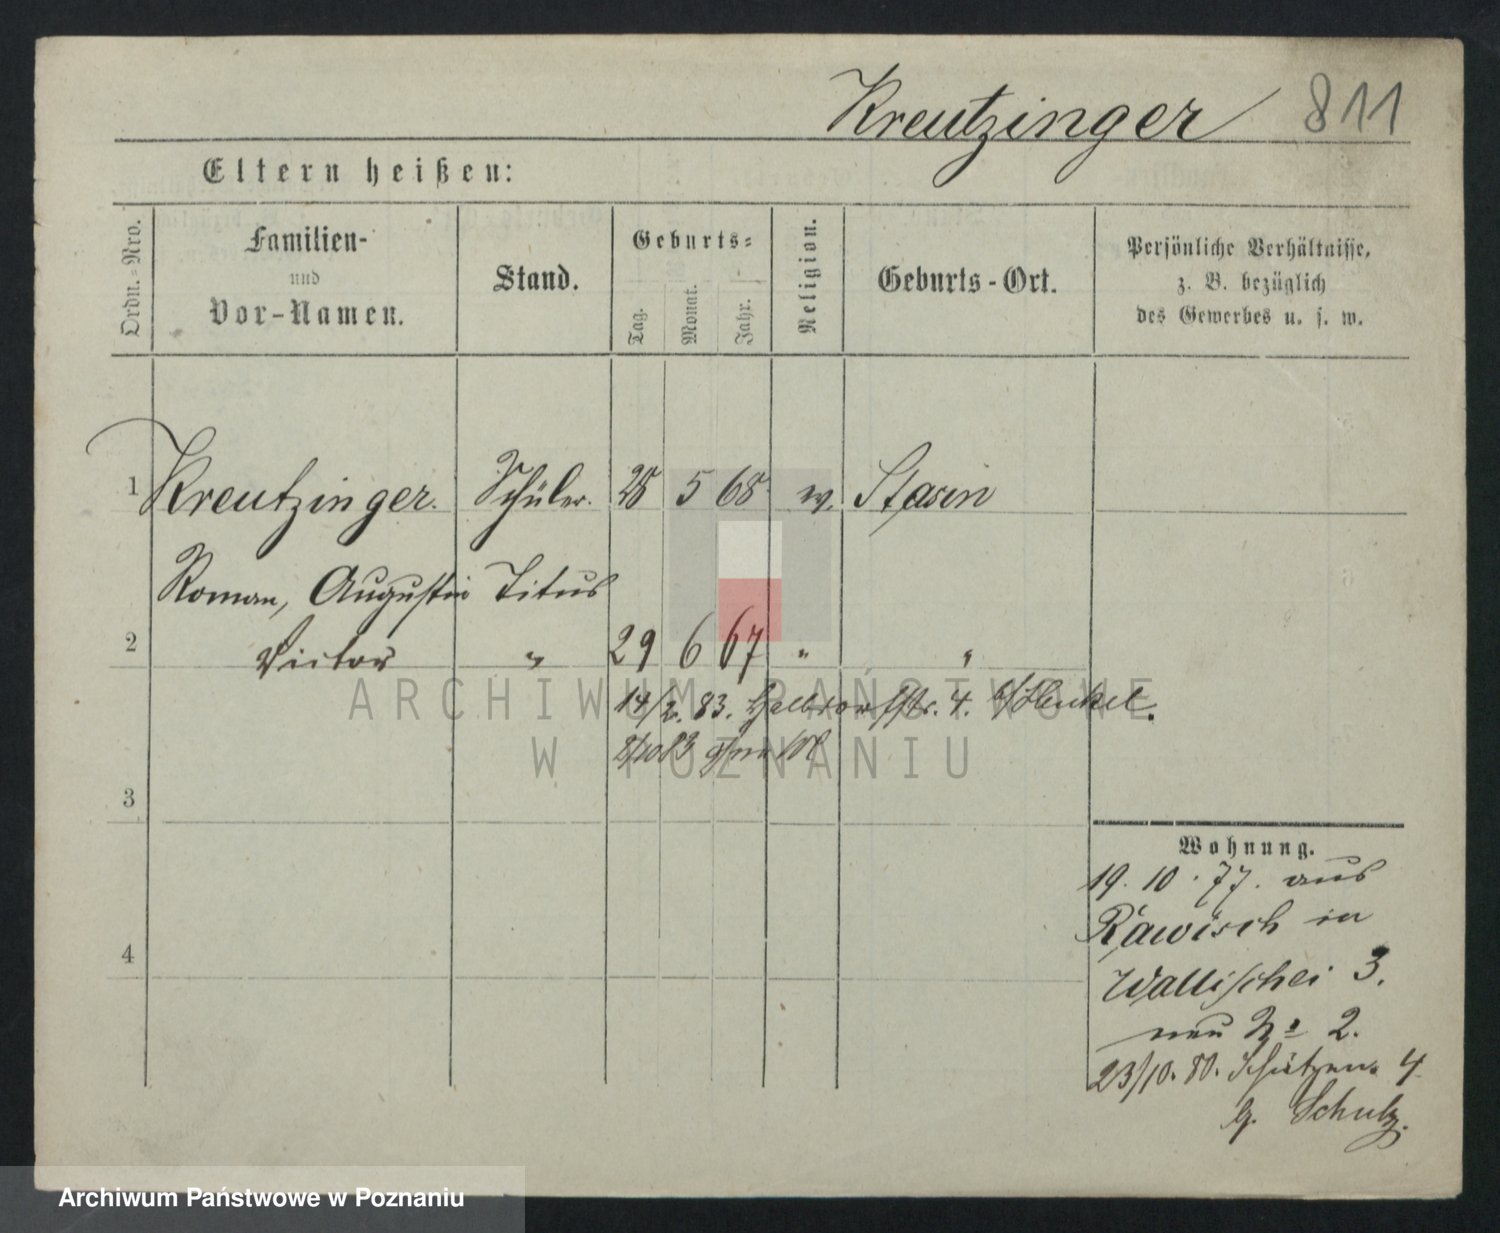 Kreutzinger 811
Eltern heißen:
Ordn.-Nro.
Familien-
und
Vor-Namen.
Stand.
Geburts-
Tag.
Monat.
Jahr.
Religion.
Geburts-Ort.
Persönliche Verhältnisse,
z. B. bezüglich
des Gewerbes u. s. w.
1 Kreutzinger. Schüler. 28 5 68 w.
Roman, Augustin Titus
2 Victor " 29 6 67 " "
14/2. 83. 4.
3
4
Wohnung.
19. 10. 77. aus
Rawisch in
Wallischei 3.
neu No 2.
23/10. 80. Schützen. 4
Schulz.
ARCHIWUM PAŃSTWOWE
W POZNANIU
Archiwum Państwowe w Poznaniu